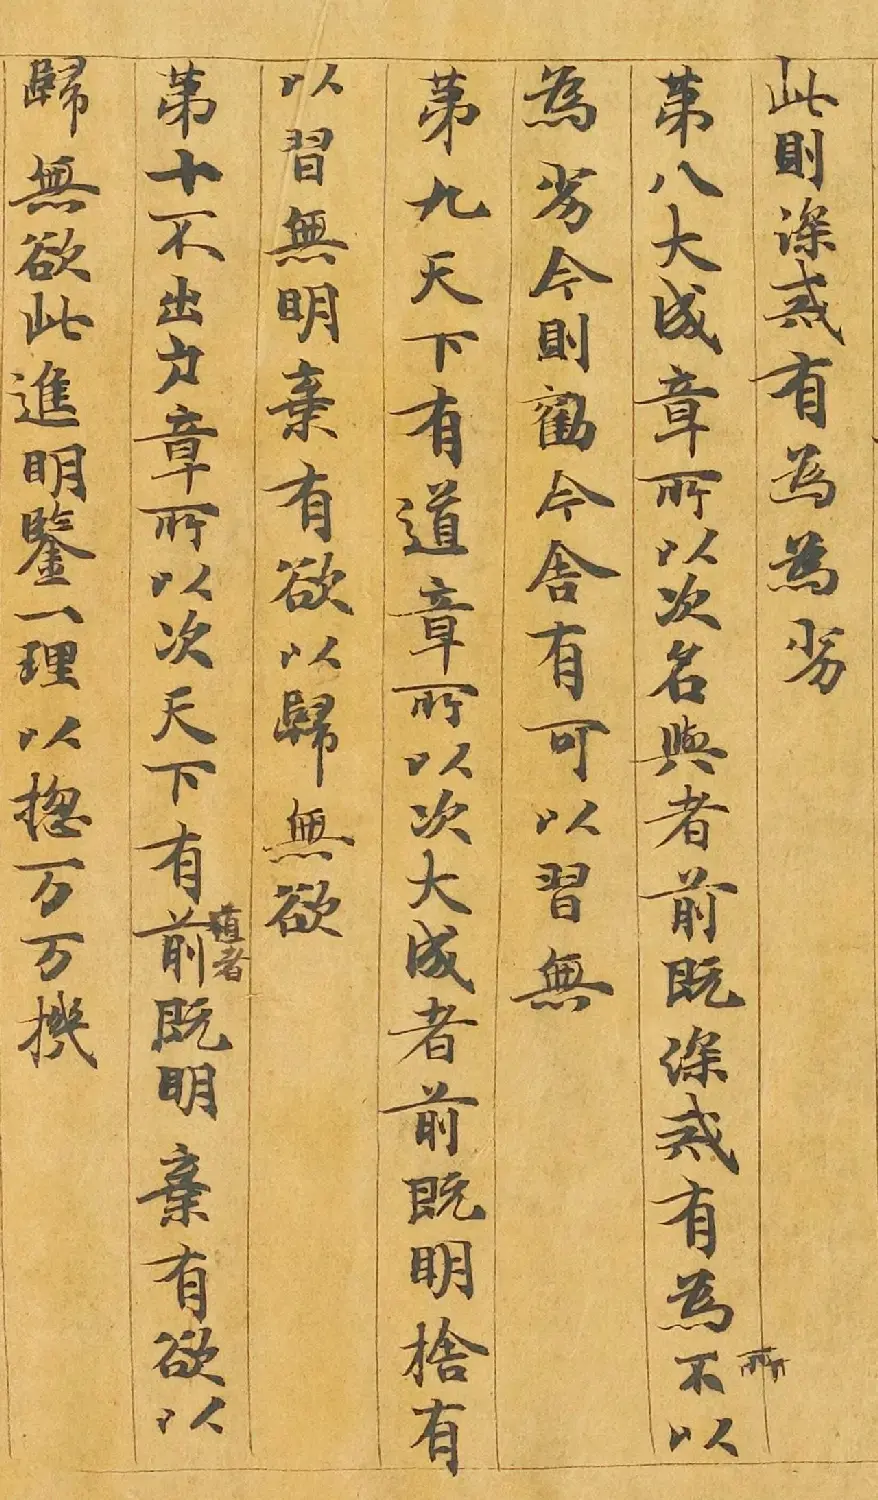 此則深惑有為為劣
第八大成章所以次名與者前既深惑有為不所以
為劣今則勸今舍有可以習無
第九天下有道章所以次大成者前既明捨有
以習無明棄有欲以歸無欲
第十不出戶章所以次天下有道者前既明棄有欲以
歸無欲此進明鑒一理以揔万万機